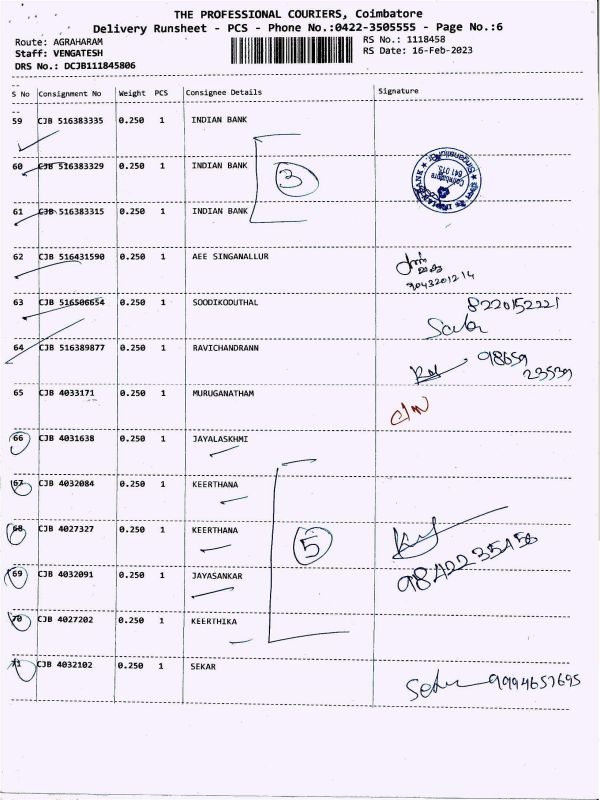 THE PROFESSIONAL COURIERS, Coimbatore
Delivery Runsheet - PCS - Phone No.:0422-3505555 - Page No.:6
Route: AGRAHARAM
Staff: VENGATESH
DRS No.: DCJB111845806
RS No.: 1118458
RS Date: 16-Feb-2023
S No Consignment No Weight PCS Consignee Details Signature
59 CJB 516383335 0.250 1 INDIAN BANK
60 CJB 516383329 0.250 1 INDIAN BANK
3
61 CJB 516383315 0.250 1 INDIAN BANK
62 CJB 516431590 0.250 1 AEE SINGANALLUR
9043201214
63 CJB 516506654 0.250 1 SOODIKODUTHAL
8220152221
64 CJB 516389877 0.250 1 RAVICHANDRANN
98659
23539
65 CJB 4033171 0.250 1 MURUGANATHAM
66 CJB 4031638 0.250 1 JAYALASKHMI
67 CJB 4032084 0.250 1 KEERTHANA
68 CJB 4027327 0.250 1 KEERTHANA
5
9842235456
69 CJB 4032091 0.250 1 JAYASANKAR
70 CJB 4027202 0.250 1 KEERTHIKA
71 CJB 4032102 0.250 1 SEKAR
9994657695